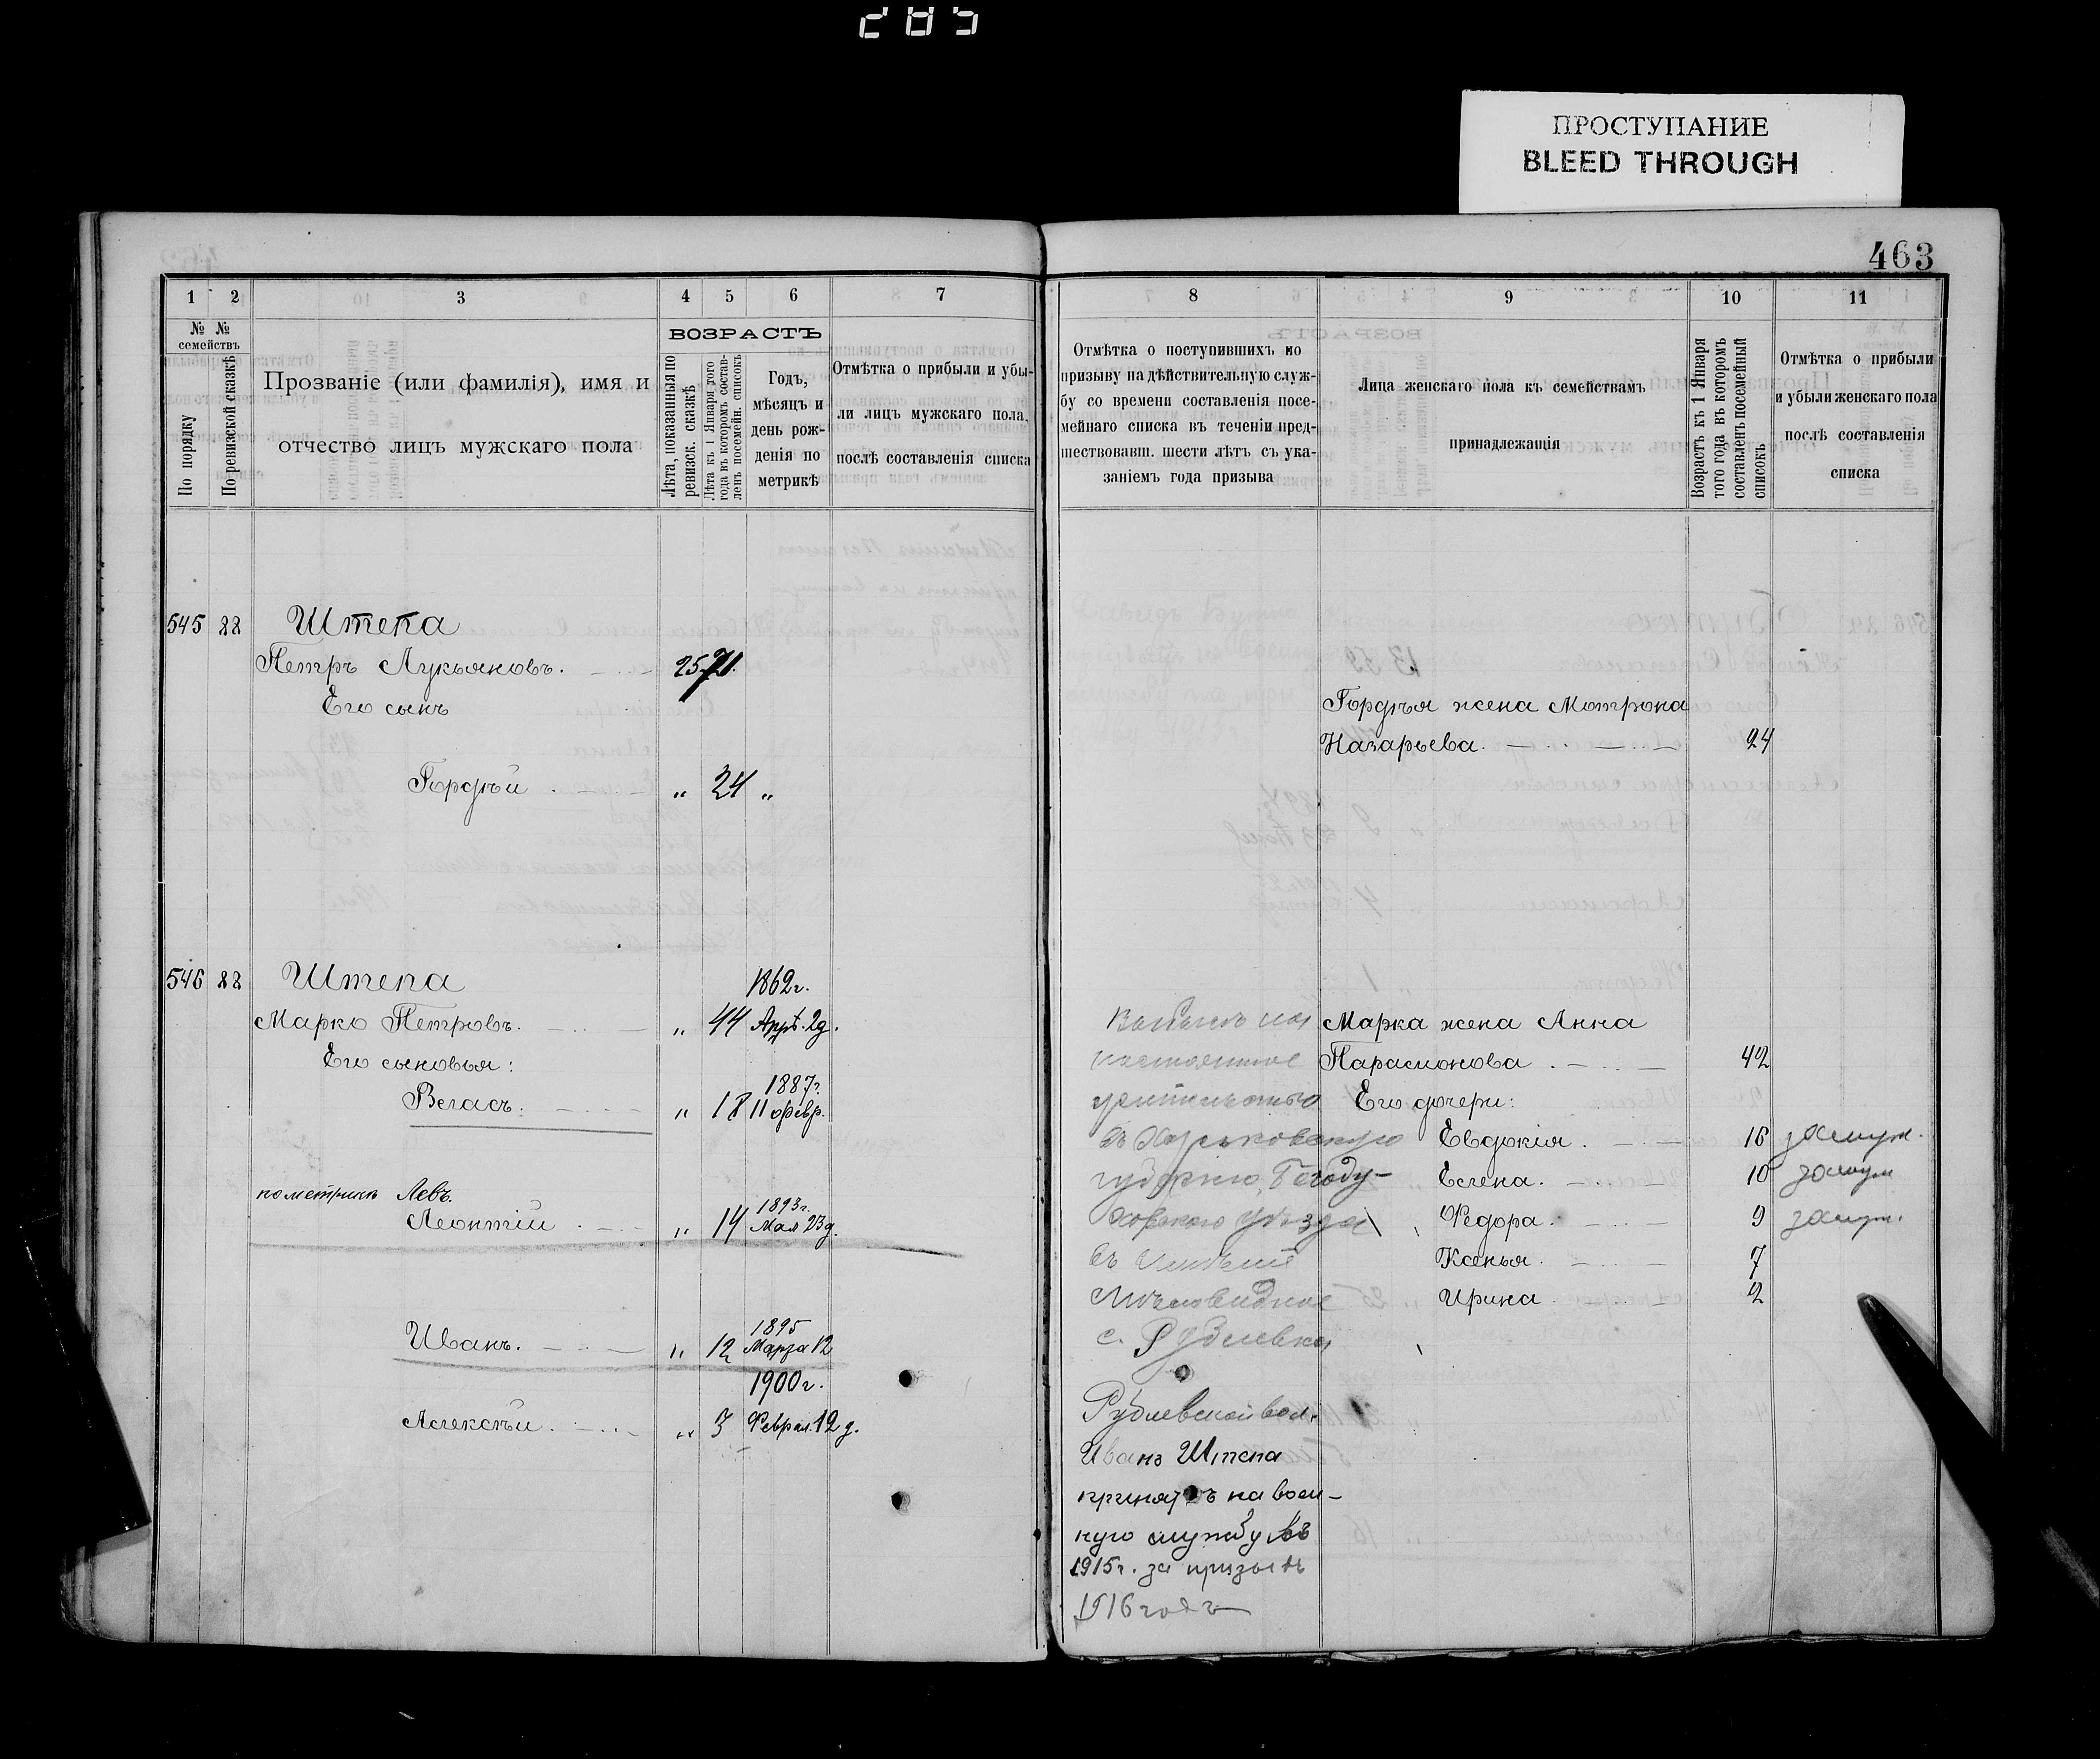 285
ПРОСТУПАНИЕ
BLEED THROUGH
463
1 2 3 4 5 6 7
№ № семействъ
По порядку
По ревизской сказкѣ
Прозваніе (или фамилія), имя и
отчество лицъ мужскаго пола
ВОЗРАСТЪ
Лѣта, показанныя по
ревизск. сказкѣ
Лѣта къ 1 Января того
года въ которомъ состав-
ленъ посемейн. списокъ
Годъ,
мѣсяцъ и
день рож-
денія по
метрикѣ
Отмѣтка о прибыли и убы-
ли лицъ мужскаго пола,
послѣ составленія списка
8 9 10 11
Отмѣтка о поступившихъ по
призыву на дѣйствительную служ-
бу со времени составленія посе-
мейнаго списка въ теченіи пред-
шествовавш. шести лѣтъ съ ука-
заніемъ года призыва
Лица женскаго пола къ семействамъ
принадлежащія
Возрастъ къ 1 Января
того года въ которомъ
составленъ посемейный
списокъ
Отмѣтка о прибыли
и убыли женскаго пола
послѣ составленія
списка
545 22 Штепа
Петръ Лукьяновъ. 25 71.
Его сынъ
Гордѣй " 24 "
Гордѣя жена Мотрона
Назарьева. 24
546 22 Штепа 1862г.
Марко Петровъ. " 44 Апр. 2д.
Его сыновья:
1887г.
Власъ. " 18 11 февр.
по метрикѣ Левъ. 1893г.
Леонтій " 14 Мая 23д.
1895
Иванъ. " 12 Марта 12
1900г.
Алексѣй. " 3 Феврал. 12 д.
Выбылъ на
постоянное
жительство
въ Харьковскую
губернію, Богоду-
ховскаго уѣзда
въ
с. Рублевка
Рублевской вол.
Иванъ Штепа
принятъ на воен-
ную службу въ
1915г. за призывъ
1916 годъ
Марка жена Анна
Парамонова 42
Его дочери:
Евдокія. 16 замуж.
Елена. 10 замуж
Федора. 9 замуж.
Ксенья. 7
Ирина. 2